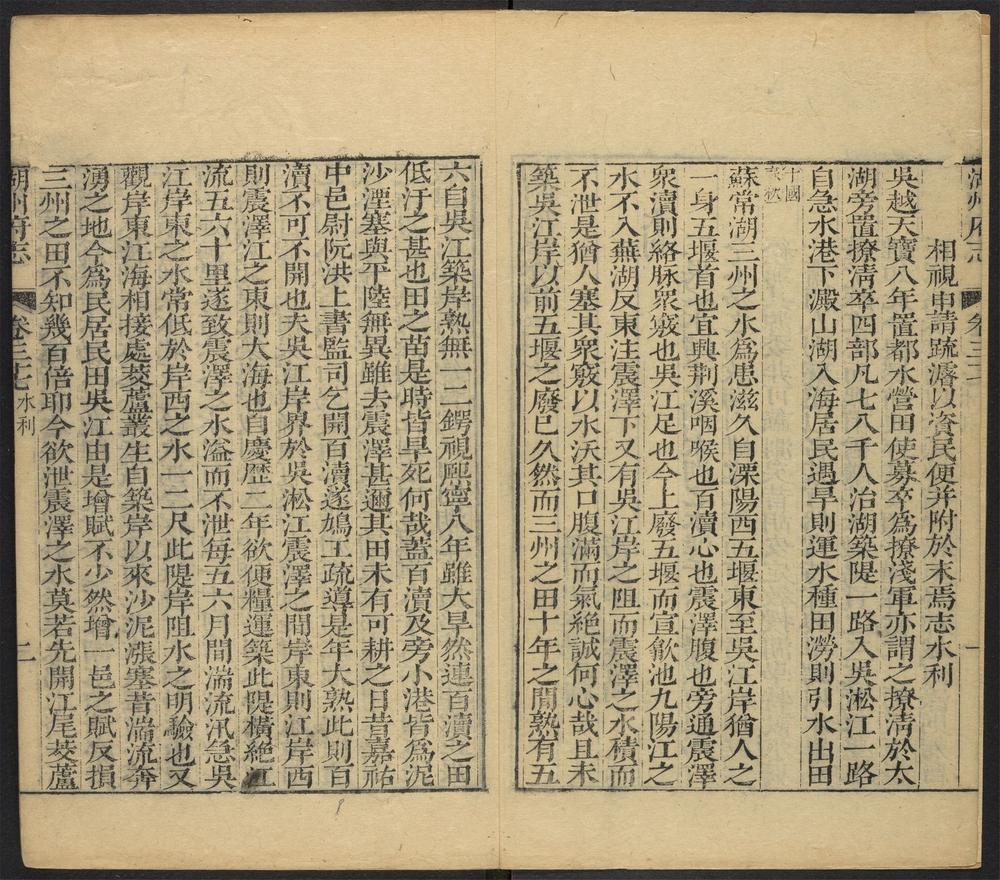 湖州府志 卷三十七 一
相視申請疏濬以資民便并附於末焉志水利
吳越天寶八年置都水營田使募卒為撩淺軍亦謂之撩淸於太
湖旁置撩淸卒四部凡七八千人治湖築隄一路入吳淞江一路
自急水港下澱山湖入海居民遇旱則運水種田澇則引水出田
十國
春秋
蘇常湖三州之水爲患滋久自溧陽西五堰東至吳江岸猶人之
一身五堰首也宜興荆溪咽喉也百瀆心也震澤腹也旁通震澤
衆瀆則絡脈衆竅也吳江足也今上廢五堰而宣歙池九陽江之
水不入蕪湖反東注震澤下又有吳江岸之阻而震澤之水積而
不泄是猶人塞其衆竅以水沃其口腹滿而氣絶誠何心哉且未
築吳江岸以前五堰之廢已久然而三州之田十年之閒熟有五
六自吳江築岸熟無一二鍔視熈寧八年雖大旱然連百瀆之田
低汙之甚也田之苗是時皆旱死何哉蓋百瀆及旁小港皆爲泥
沙湮塞與平陸無異雖去震澤甚邇其田未有可耕之日昔嘉祐
中邑尉阮洪上書監司乞開百瀆遂鳩工疏導是年大熟此則百
瀆不可不開也夫吳江岸界於吳淞江震澤之閒岸東則江岸西
則震澤江之東則大海也自慶歴二年欲便糧運築此隄橫絶江
流五六十里遂致震澤之水溢而不泄每五六月閒湍流汛急吳
江岸東之水常低於岸西之水一二尺此隄岸阻水之明驗也又
觀岸東江海相接處茭蘆叢生自築岸以來沙泥漲塞昔湍流奔
湧之地今爲民居民田吳江由是增賦不少然增一邑之賦反損
三州之田不知幾百倍耶今欲泄震澤之水莫若先開江尾茭蘆
湖州府志 卷三十七 水利 二